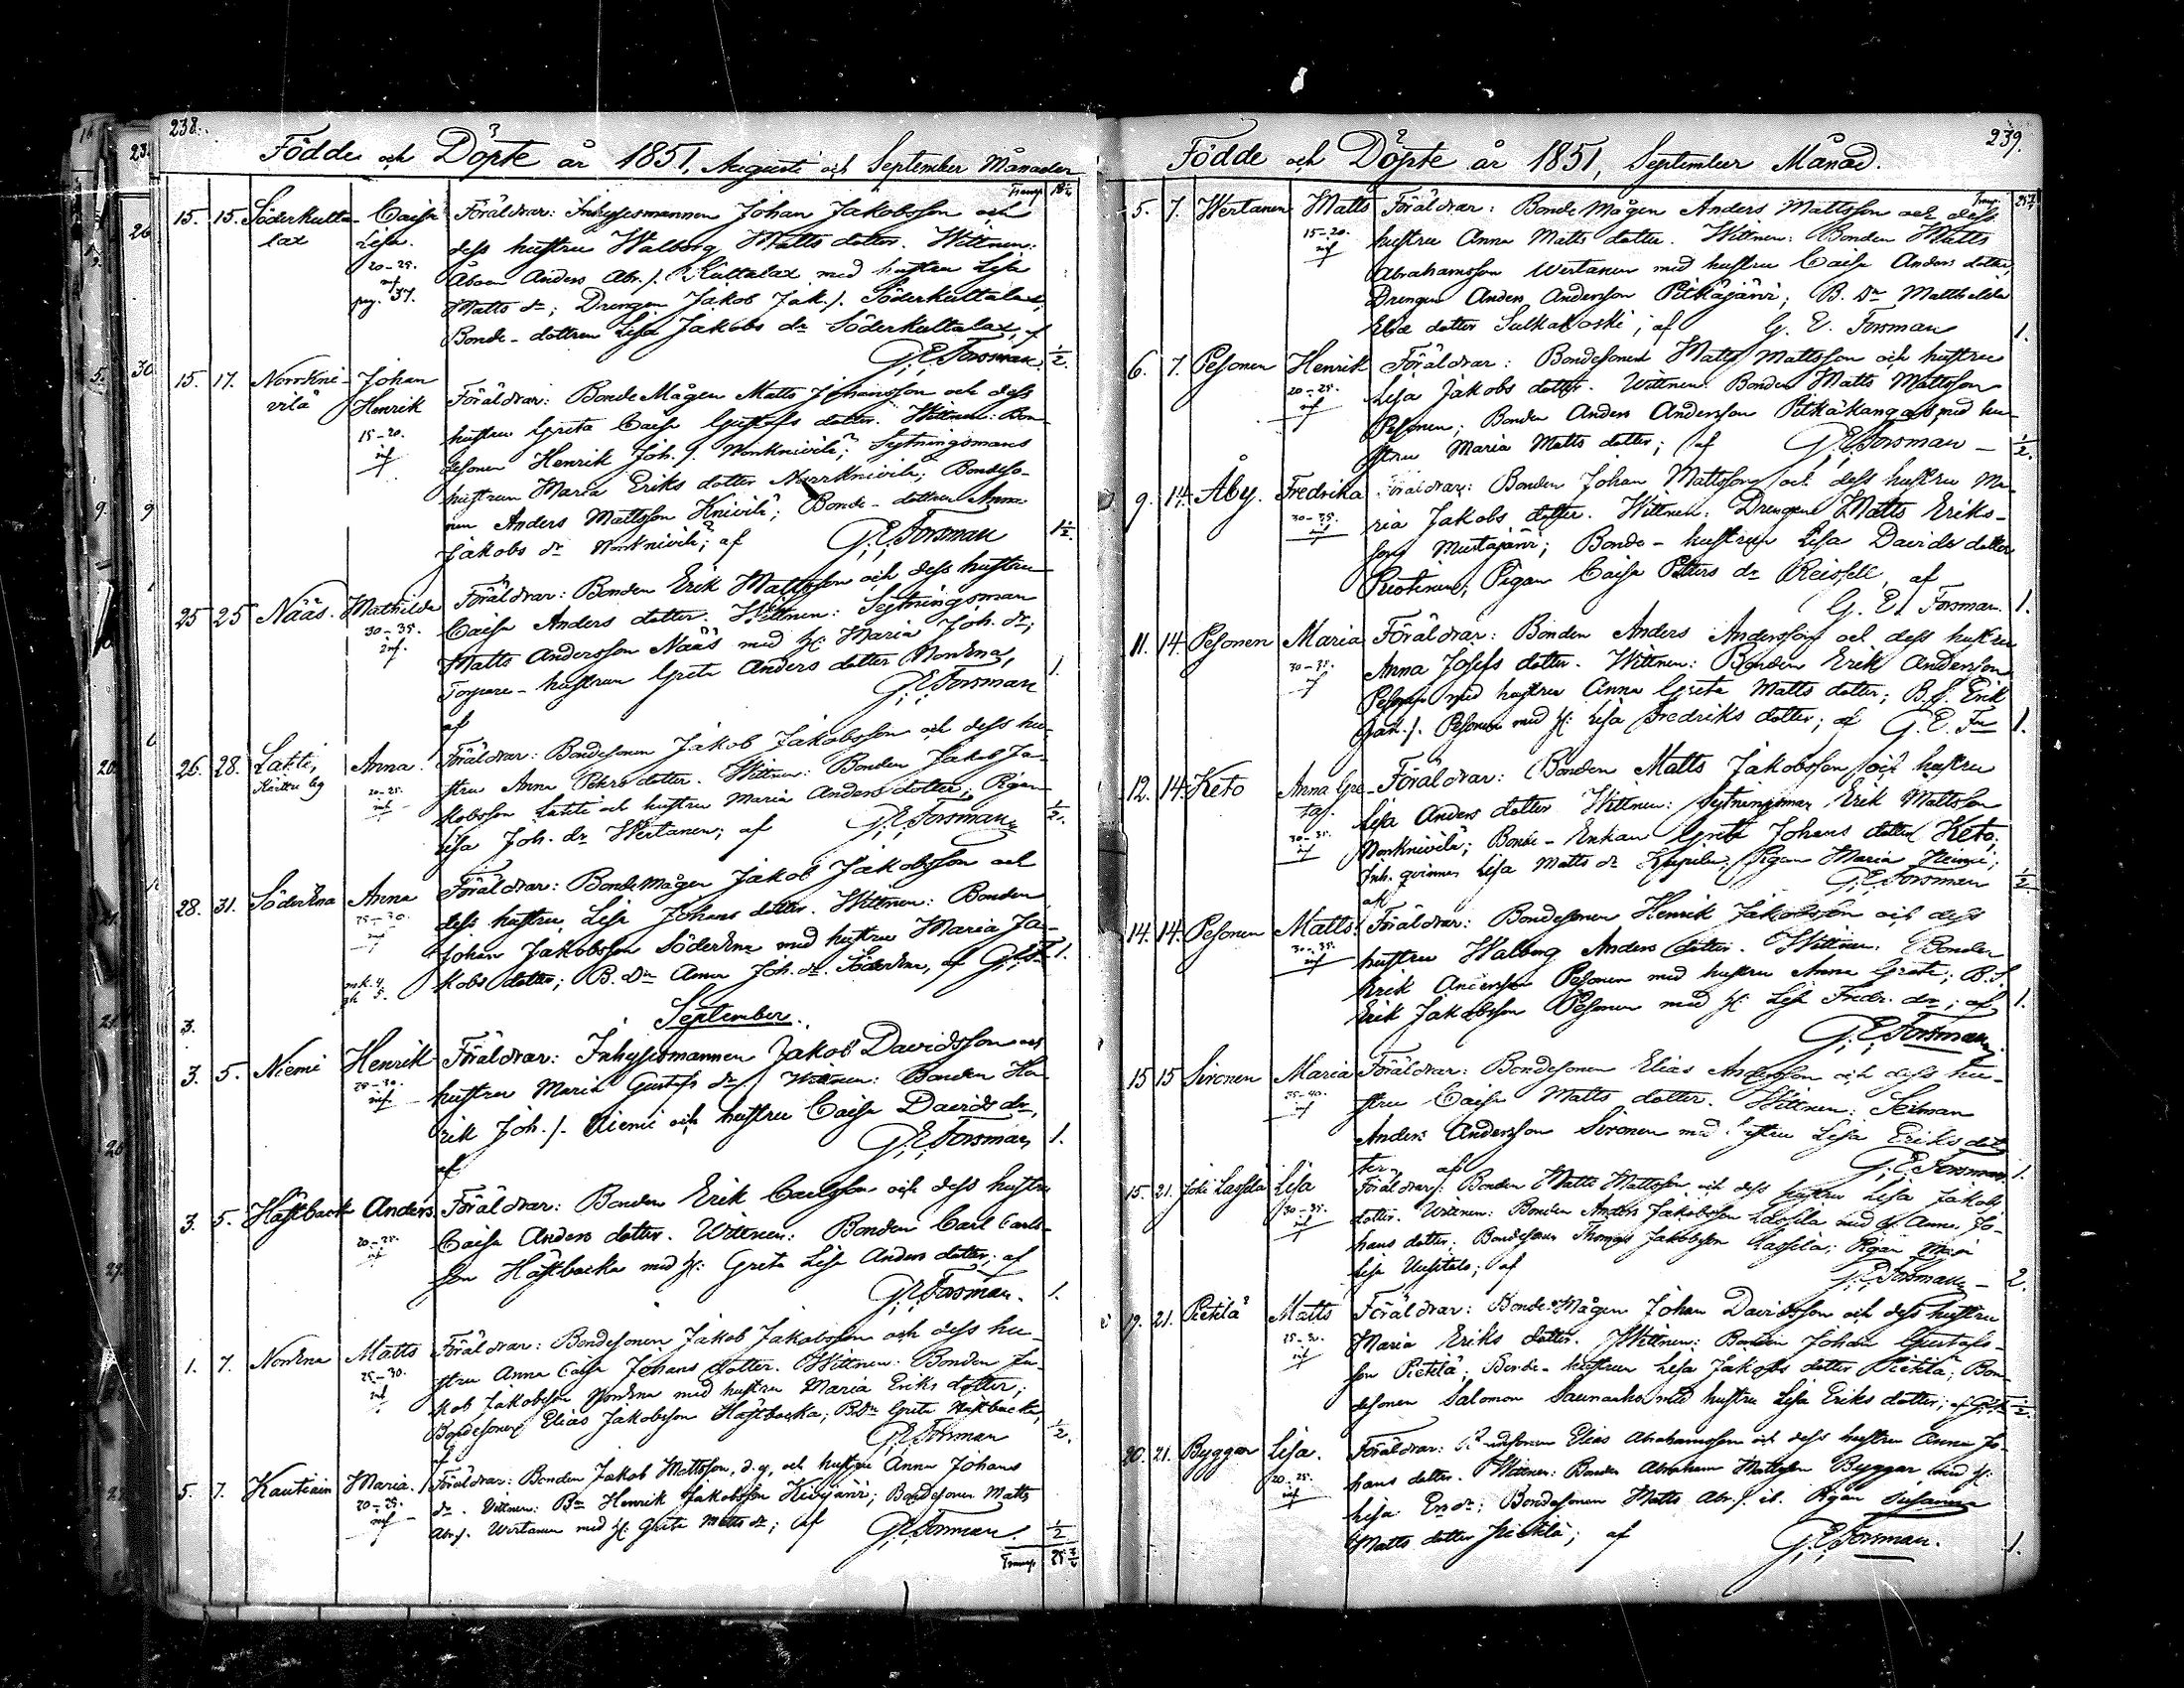 238.
Födde och Döpte år 1851, Augusti och September Månader
Transp. 18 1/4
15. 15. Söderkulta- Caisa Föräldrar: Inhysesmannen Johan Jakobsson och
lax Lisa. dess hustru Walborg Matts dotter. Wittnen:
20-25. Åboen Anders Abr. s. Kultalax med hustru Lisa
inf
pag. 37. Matts dr; Drengen Jakob Jak. s. Söderkultalax,
Bonde-dottren Lisa Jakobs dr Söderkultalax, af
G. E. Forsman. 1/2.
15. 17. Norrkni- Johan Föräldrar: Bonde Mågen Matts Johansson och dess
vilä Henrik hustru Greta Caisa Gustafs dotter. Wittnen: Bon-
15-20. desonen Henrik Joh. s. Norrknivilä; Sytningsmans
inf hustrun Maria Eriks dotter Norrknivilä; Bondeso-
nen Anders Mattsson Knivilä; Bonde-dottren Anna
Jakobs dr Norrknivilä; af G. E. Forsman 1 1/2.
25 25 Nääs. Mathilda Föräldrar: Bonden Erik Mattsson och dess hustru
30-35. Caisa Anders dotter. Wittnen: Sytningsman
inf. Matts Andersson Nääs med h: Maria Joh. dr;
Torpare-hustrun Greta Anders dotter Norrena, 1.
af G. E. Forsman
26. 28. Lahti, Anna. Föräldrar: Bondesonen Jakob Jakobsson och dess hu-
20-25. stru Anna Pehrs dotter. Wittnen: Bonden Jakob Ja-
inf kobsson Lahti och hustru Maria Anders dotter; Pigan
Lisa Joh. dr Wertanen; af G. E. Forsman 1/2.
28. 31. Söderena Anna Föräldrar: Bonde mågen Jakob Jakobsson och
25-30. dess hustru Lisa Johans dotter. Wittnen: Bonden
inf Johan Jakobsson Söderena med hustru Maria Ja-
kobs dotter; B. dr Anna Joh. dr Söderena, af G. E. Fn 1.
mk. 4.
gk 5.
3. September.
3. 5. Niemi Henrik Föräldrar: Inhysesmannen Jakob Davidsson och
25-30. hustru Maria Gustafs dr. Wittnen: Bonden Hen-
inf rik Joh. s. Niemi och hustru Caisa Davids dr,
af G. E. Forsman 1.
3. 5. Hästbacka Anders Föräldrar: Bonden Erik Carlsson och dess hustru
20-25. Caisa Anders dotter. Wittnen: Bonden Carl Carls-
inf son Hästbacka med h: Greta Lisa Anders dotter; af
G. E. Forsman. 1.
1. 7. Norrena Matts Föräldrar: Bondesonen Jakob Jakobsson och dess hu-
25-30. stru Anna Caisa Johans dotter. Wittnen: Bonden Ja-
inf kob Jakobsson Norrena med hustru Maria Eriks dotter;
Bondesonen Elias Jakobsson Hästbacka; B. dr Greta Hästbacka,
G. E. Forsman 1/2.
5. 7. Kautiain Maria. Föräldrar: Bonden Jakob Mattsson, d. y., och hustru Anna Johans
20-25. dr. Wittnen: Bn Henrik Jakobsson Kivijärvi; Bondesonen Matts
inf Abr. s. Wertanen med h: Greta Matts dr; af G. E. Forsman. 1/2
Transp. 25 3/4
239.
Födde och Döpte år 1851, September Månad.
Transp. 25 3/4
5. 7. Wertanen Matts Föräldrar: Bonde Mågen Anders Mattsson och dess
15-20. hustru Anna Matts dotter. Wittnen: Bonden Matts
inf Abrahamsson Wertanen med hustru Caisa Anders dotter,
Drengen Anders Andersson Pitkäjärvi; B. dr Mathilda
dotter Sulkakoski; af G. E. Forsman 1.
6. 7. Pesonen Henrik Föräldrar: Bondesonen Matts Mattsson och hustru
20-25. Lisa Jakobs dotter. Wittnen: Bonden Matts Mattsson
inf Pesonen; Bonden Anders Andersson Pitkäkangas med hu-
stru Maria Matts dotter; af G. E. Forsman 1/2.
9. 14. Åby. Fredrika Föräldrar: Bonden Johan Mattsson och dess hustru Ma-
30-35. ria Jakobs dotter. Wittnen: Drengen Matts Eriks-
inf son Mustajärvi; Bonde-hustrun Lisa Davids dotter
Pigan Caisa Petters dr af
G. E. Forsman. 1.
11. 14. Pesonen Maria Föräldrar: Bonden Anders Andersson och dess hustru
30-35. Anna Josefs dotter. Wittnen: Bonden Erik Andersson
inf Pesonen med hustru Anna Greta Matts dotter; B. S. Erik
Jak. s. Pesonen med h: Lisa Fredriks dotter; af G. E. Fn 1.
12. 14. Keto Anna Gre- Föräldrar: Bonden Matts Jakobsson och hustru
ta. Lisa Anders dotter Wittnen: Sytningsman Erik Mattsson
30-35. Norrknivilä; Bonde-Enkan Greta Johans dotter Keto;
inf Inh. qvinnan Lisa Matts dr Pigan Maria Niemi;
af G. E. Forsman 1/2.
14. 14. Pesonen Matts. Föräldrar: Bondesonen Henrik Jakobsson och dess
30-35. hustru Walborg Anders dotter. Wittnen: Bonden
inf Erik Andersson Pesonen med hustru Anna Greta; B. S.
Erik Jakobsson Pesonen med h: Lisa Fredr. dr; af 1.
G. E. Forsman
15 15 Sironen Maria Föräldrar: Bondesonen Elias Andersson och dess hu-
35-40. stru Caisa Matts dotter. Wittnen:
inf Anders Andersson Sironen med hustru Lisa Eriks dot-
ter af G. E. Forsman 1.
15. 21. Joki Lassila Lisa Föräldrar: Bonden Matts Mattsson och dess hustru Lisa Jakobs
30-35. dotter. Wittnen: Bonden Anders Jakobsson Lassila med h: Anna Jo-
inf hans dotter; Bondesonen Thomas Jakobsson Lassila; Pigan Maja
Lisa Uusitalo; af G. E. Forsman 2.
19. 21. Pietilä Matts Föräldrar: Bonde Mågen Johan Davidsson och dess hustru
25-30. Maria Eriks dotter. Wittnen: Bonden Johan Gustafs-
inf son Pietilä; Bonde-hustrun Lisa Jakobs dotter Pietilä; Bon-
desonen Salomon Saunaaho med hustru Lisa Eriks dotter; af G. E. Fn 1/2.
20. 21. Byggar Lisa. Föräldrar: Bondesonen Elias Abrahamsson och dess hustru Anna Jo-
20-25. hans dotter. Wittnen: Bonden Abraham Mattsson Byggar med h:
inf Lisa Ers dr; Bondesonen Matts Abr. s. ib. Pigan Susanna
Matts dotter Pietilä; af G. E. Forsman. 1.